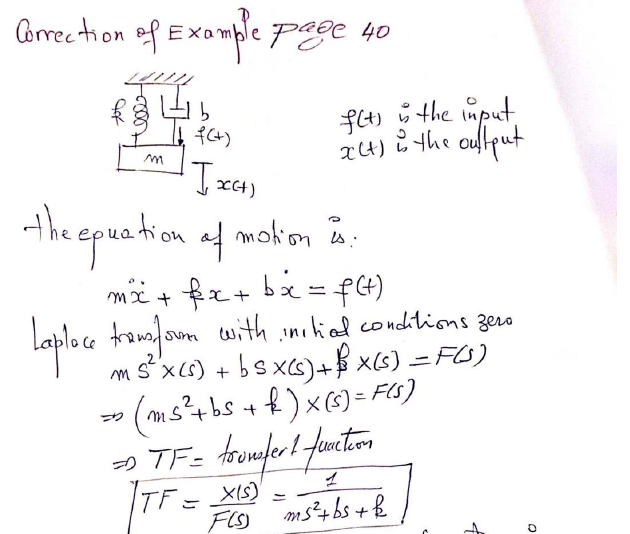 Correction of Example page 40
k
b
f(t)
m
x(t)
f(t) is the input
x(t) is the output
the equation of motion is:
mẍ + kx + bẋ = f(t)
Laplace transform with initial conditions zero
m s² X(s) + b s X(s) + k X(s) = F(s)
⇒ (ms² + bs + k) X(s) = F(s)
⇒ TF = transfert function
TF = X(s)/F(s) = 1/(ms² + bs + k)